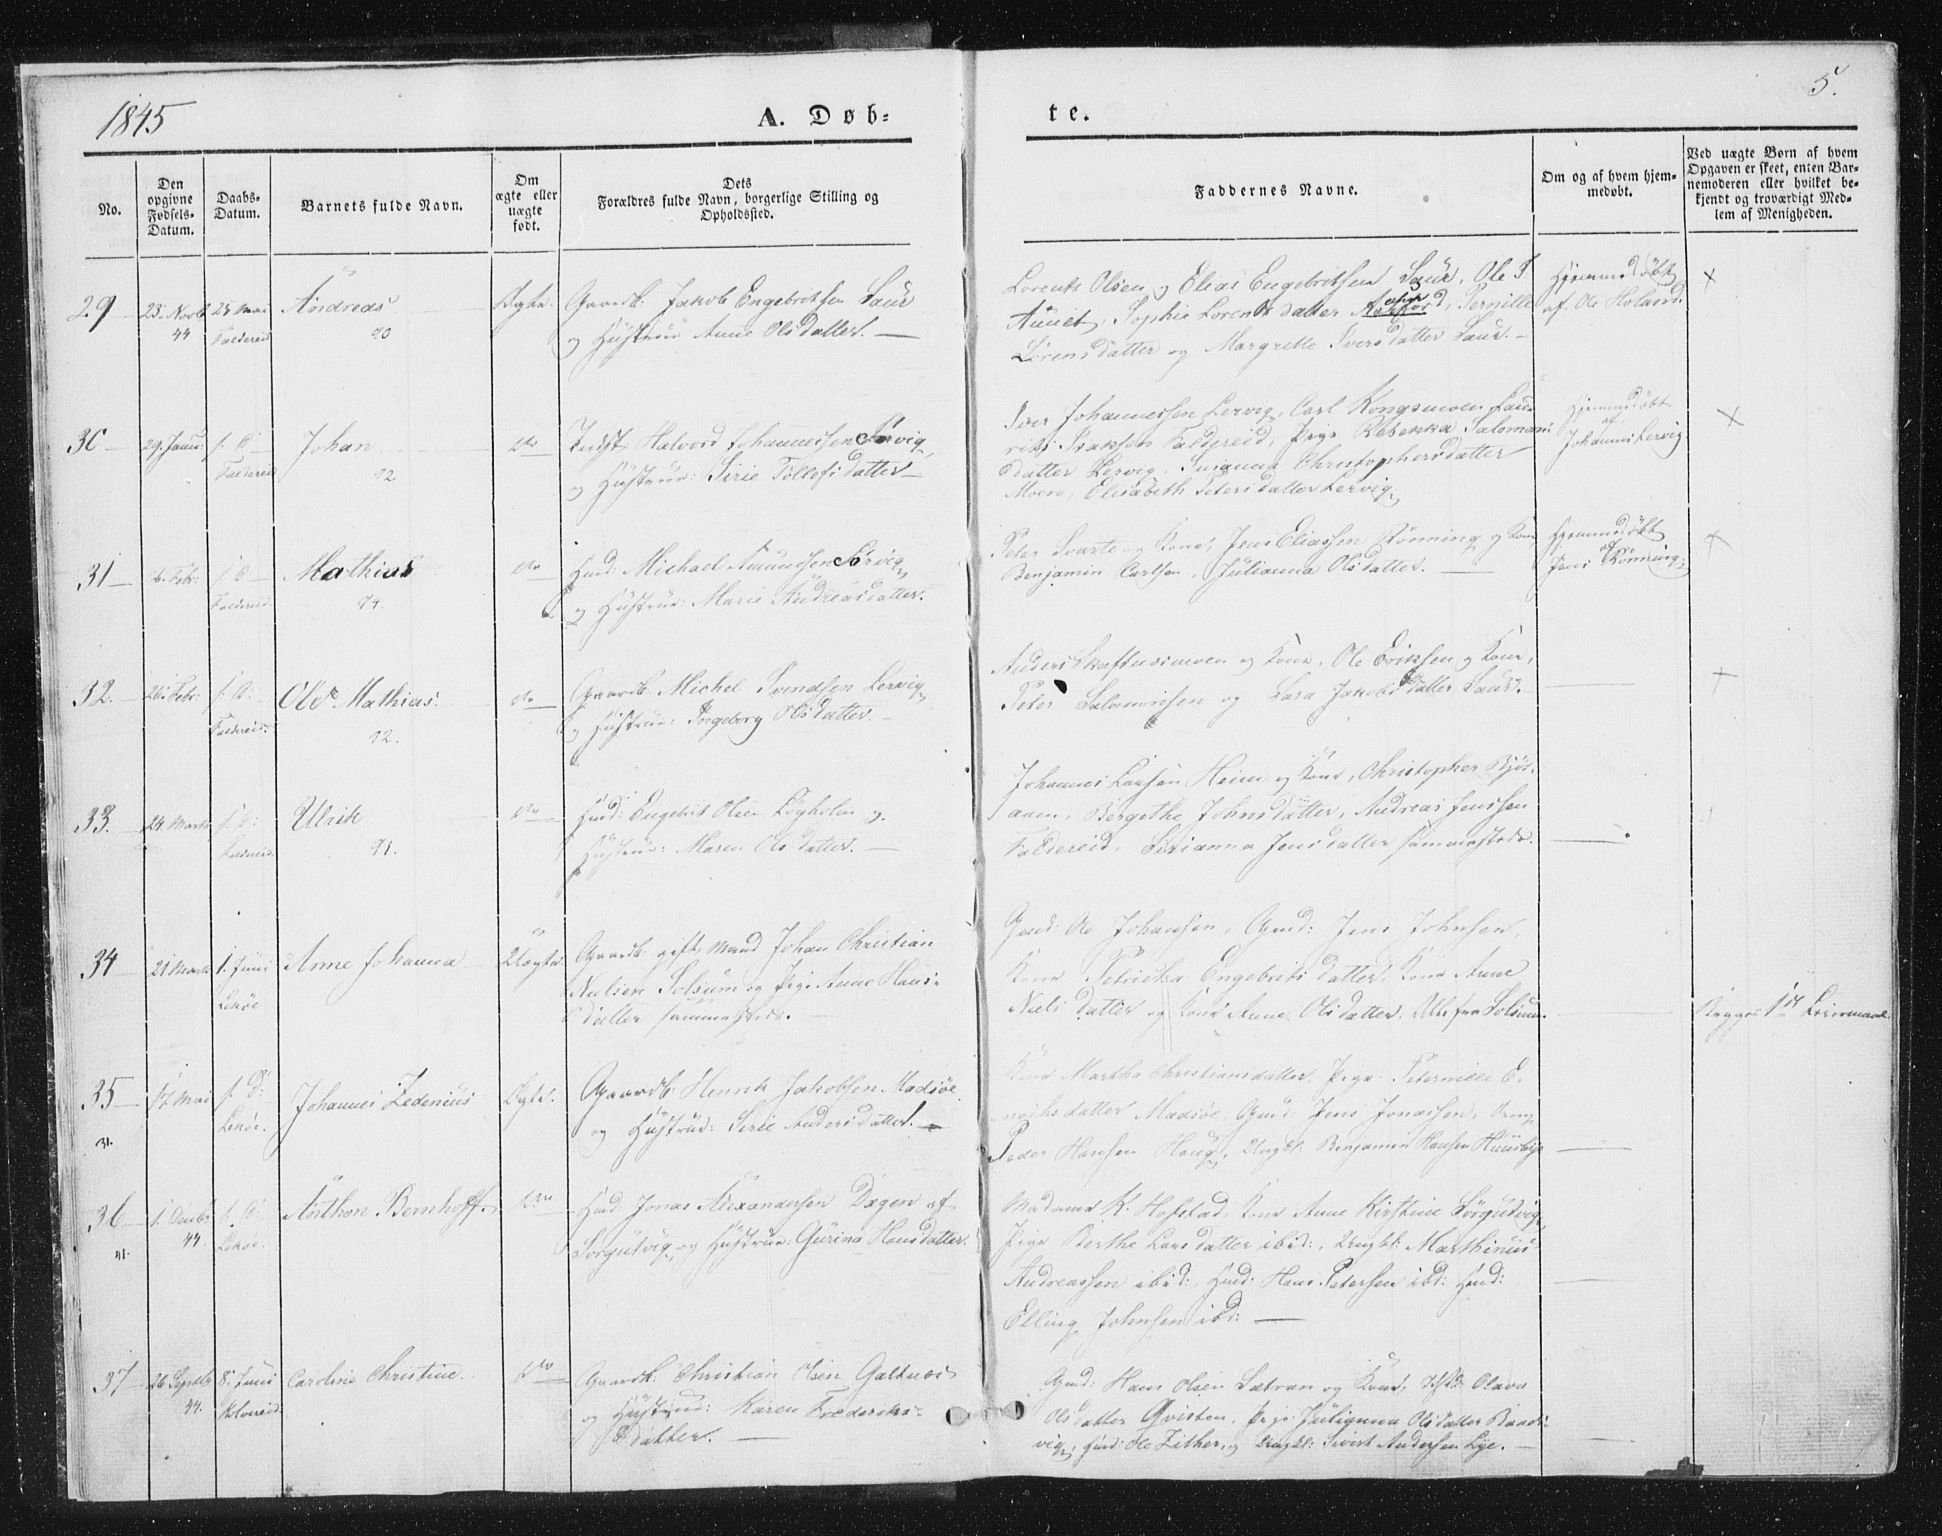 1845
A. Døb=
te.
5.
No.
Den
opgivne
Fødsels=
Datum.
Daabs=
Datum.
Barnets fulde Navn.
Om
ægte eller
uægte
født.
Dets
Forældres fulde Navn, borgerlige Stilling og
Opholdssted.
Faddernes Navne.
Om og af hvem hjem=
medøbt.
Ved uægte Børn af hvem
Opgaven er skeet, enten Bar=
nemoderen eller hvilket be=
kjendt og troværdigt Med=
lem af Menigheden.
29
25. Novb
44
25 Mai
Foldereid
Andreas
Ægte.
Gaardb: Jakob Engebrethsen Saur
og Hustrue Anne Olsdatter.
Lorents Olsen og Elias Engebrethsen Saur, Ole T.
Aunet, Sophie Lorentsdatter, Pernille
Lorensdatter og Margrethe Iversdatter Saur.
Hjemmedøbt
af Ole Holand
30
29. Janu:
Foldereid
Johan
Indst: Halvord Johannessen Sørvig
og Hustrue: Sirie Tollefsdatter
Iver Johannessen Lervig, Carl Kongsmoen, Lau=
rits Isaksen Foldereid, Pige Rebekka Salomons
datter Lervig, Susanna Christophersdatter
Moene, Elisabeth Petersdatter Lervig
Hjemmedøbt
af
Johannes Lervig
31
6. Febr:
Foldereid
Mathias
Huusm: Michael Amundsen Sørvig
og Hustrue: Maria Andreasdatter.
Peter Svarte og Kone, Jens Eliassen Rønning og Kone
Benjamin Carlsen, Julianna Olsdatter.
Hjemmedøbt
af
Jens Rønning.
32.
26. Febr:
Foldereid.
Ole Mathias.
12.
Gaardb: Michel Svendsen Lervig
og Hustrue: Ingeborg Olsdatter.
Anders Skaftnesmoen og Kone, Ole Eriksen og Kone,
Peter Salomonsen og Sara Jakobsdatter Saur.
33.
24. Marts
Foldereid.
Ulrik
Huusm: Engebrit Olsen Løgholm og
Hustrue: Maren Olsdatter.
Johannes Larsen Heim og Kone, Christopher Bjør=
aaen, Bergethe Johnsdatter, Andreas Jenssen
Foldereid, Sirianna Jensdatter sammesteds.
34
21 Marts
1. Juni
Lekøe
Anne Johanna
Uægte.
Gaardb: gift Mand Johan Christian
Nielsen Solsum og Pige Anne Hans=
datter sammesteds.
Gmd: Ole Johansen, Gmd: Jens Johnsen,
Kone Petricka Engebretsdatter, Kone Anne
Nielsdatter og Kone Anne Olsdatter. Alle fra Solsum.
Begges 1ste Leiermaal.
35
17. Mai
Lekøe.
Johannes Zedenius
Ægte.
Gaardb: Henrik Jakobsen Madsøe
og Hustrue: Sirie Andersdatter.
Kone Martha Christiansdatter, Pige Peternille E=
nochsdatter Madsøe, Gmd: Jens Jonassen, Dreng
Peder Hansen Haug, Ungk: Benjamin Hansen Huusbye
36
44.
Lekøe.
Arthon Bernhoff.
Huusm: Jonas Alexandersen Dagen af
Sørgutvig, og Hustrue: Gurina Hansdatter.
Madame K. Hofstad, Kone Anne Kirstine Sørgutvig
Pige Berthe Larsdatter ibid:, Ungk: Marthinus
Andreassen ibid:, Huusm: Hans Petersen ibd: Huusm:
Elling Johnsen ibd:
37
26 Septbr
44.
8. Juni
Kolvereid
Caroline Christine.
Gaardb: Christian Olsen Galtnes
og Hustrue: Karen Frederiks=
datter.
Gmd: Hans Olsen Sætran og Kone, Olava
Olsdatter Qvisten, Pige Julianna Olsdatter Band=
vig, Ole Zither, og Ungk: Sivert Andersen Lye.